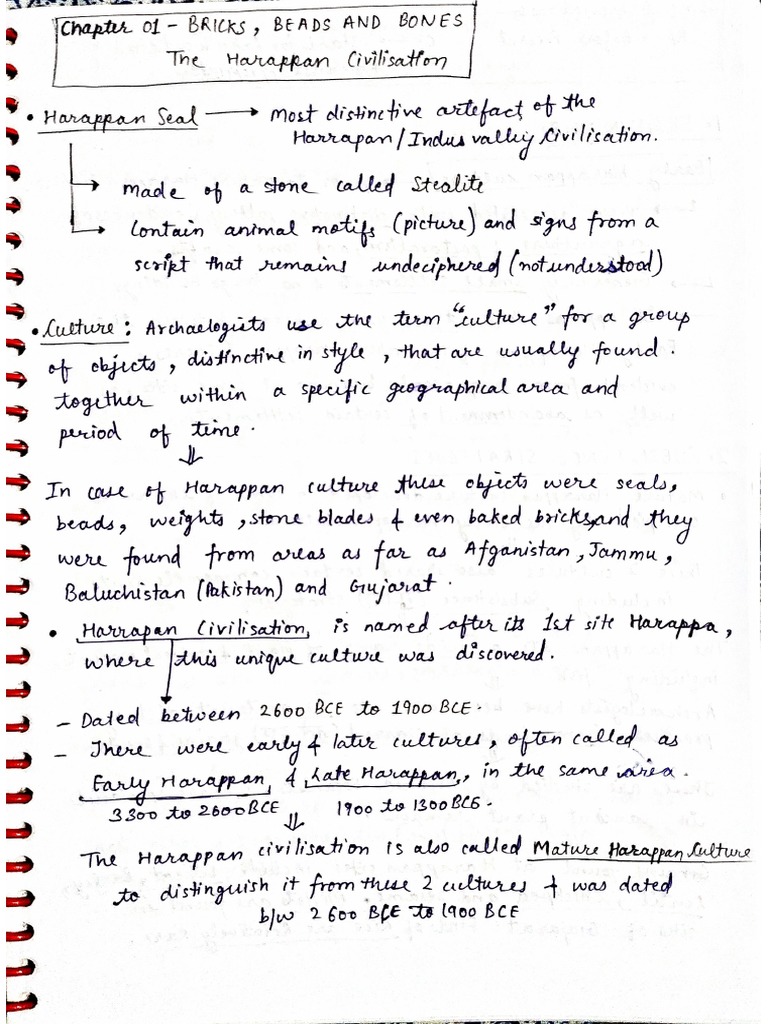 Chapter 01 - BRICKS, BEADS AND BONES
The Harappan Civilisation
• Harappan Seal → Most distinctive artefact of the
Harrapan/Indus valley Civilisation.
→ made of a stone called Stealite
→ Contain animal motifs (picture) and signs from a
script that remains undeciphered (not understood)
• Culture: Archaelogists use the term "culture" for a group
of objects, distinctive in style, that are usually found.
together within a specific geographical area and
period of time.
⇓
In case of Harappan culture these objects were seals,
beads, weights, stone blades & even baked bricks, and they
were found from areas as far as Afganistan, Jammu,
Baluchistan (Pakistan) and Gujarat.
• Harrapan Civilisation, is named after its 1st site Harappa,
where this unique culture was discovered.
- Dated between 2600 BCE to 1900 BCE.
- There were early & later cultures, often called as
Early Harappan, & Late Harappan, in the same area.
3300 to 2600 BCE 1900 to 1300 BCE.
⇓
The Harappan civilisation is also called Mature Harappan Culture
to distinguish it from these 2 cultures & was dated
b/w 2600 BCE to 1900 BCE